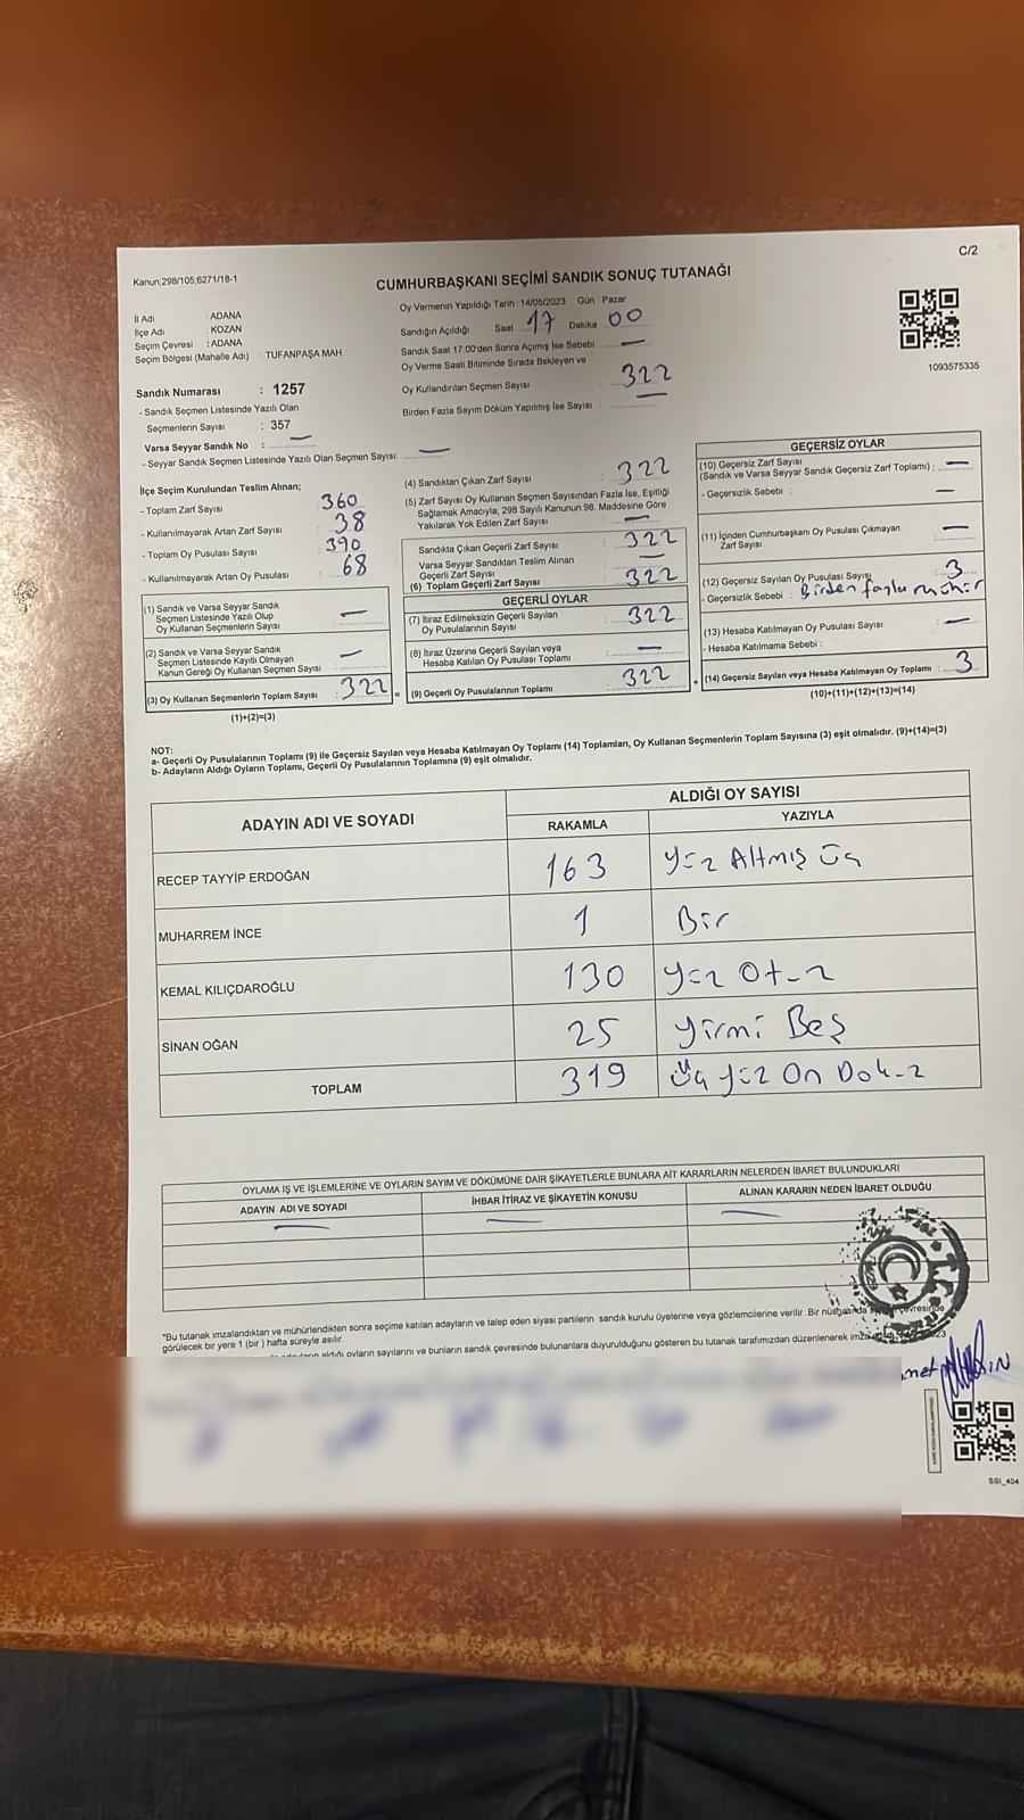 C/2
Kanun;298/105;6271/18-1
CUMHURBAŞKANI SEÇİMİ SANDIK SONUÇ TUTANAĞI
İl Adı ADANA
İlçe Adı KOZAN
Seçim Çevresi : ADANA
Seçim Bölgesi (Mahalle Adı) TUFANPAŞA MAH
Sandık Numarası : 1257
- Sandık Seçmen Listesinde Yazılı Olan
Seçmenlerin Sayısı : 357
Varsa Seyyar Sandık No : —
- Seyyar Sandık Seçmen Listesinde Yazılı Olan Seçmen Sayısı —
Oy Vermenin Yapıldığı Tarih : 14/05/2023 Gün Pazar
Sandığın Açıldığı Saat 17 Dakika 00
Sandık Saat 17:00'den Sonra Açılmış İse Sebebi —
Oy Verme Saati Bitiminde Sırada Bekleyen ve
Oy Kullandırılan Seçmen Sayısı 322
Birden Fazla Sayım Döküm Yapılmış İse Sayısı —
1093575335
İlçe Seçim Kurulundan Teslim Alınan;
- Toplam Zarf Sayısı 360
- Kullanılmayarak Artan Zarf Sayısı 38
- Toplam Oy Pusulası Sayısı 390
- Kullanılmayarak Artan Oy Pusulası 68
(1) Sandık ve Varsa Seyyar Sandık
Seçmen Listesinde Yazılı Olup
Oy Kullanan Seçmenlerin Sayısı —
(2) Sandık ve Varsa Seyyar Sandık
Seçmen Listesinde Kayıtlı Olmayan
Kanun Gereği Oy Kullanan Seçmen Sayısı —
(3) Oy Kullanan Seçmenlerin Toplam Sayısı 322
(1)+(2)=(3)
(4) Sandıktan Çıkan Zarf Sayısı : 322
(5) Zarf Sayısı Oy Kullanan Seçmen Sayısından Fazla İse, Eşitliği
Sağlamak Amacıyla, 298 Sayılı Kanunun 98. Maddesine Göre
Yakılarak Yok Edilen Zarf Sayısı —
Sandıkta Çıkan Geçerli Zarf Sayısı 322
Varsa Seyyar Sandıktan Teslim Alınan
Geçerli Zarf Sayısı —
(6) Toplam Geçerli Zarf Sayısı 322
GEÇERLİ OYLAR
(7) İtiraz Edilmeksizin Geçerli Sayılan
Oy Pusulalarının Sayısı 322
(8) İtiraz Üzerine Geçerli Sayılan veya
Hesaba Katılan Oy Pusulası Toplamı —
= (9) Geçerli Oy Pusulalarının Toplamı 322
GEÇERSİZ OYLAR
(10) Geçersiz Zarf Sayısı
(Sandık ve Varsa Seyyar Sandık Geçersiz Zarf Toplamı) : —
- Geçersizlik Sebebi : —
(11) İçinden Cumhurbaşkanı Oy Pusulası Çıkmayan
Zarf Sayısı —
(12) Geçersiz Sayılan Oy Pusulası Sayısı 3
- Geçersizlik Sebebi : Birden fazla mühür
(13) Hesaba Katılmayan Oy Pusulası Sayısı —
- Hesaba Katılmama Sebebi :
+ (14) Geçersiz Sayılan veya Hesaba Katılmayan Oy Toplamı 3
(10)+(11)+(12)+(13)=(14)
NOT:
a- Geçerli Oy Pusulalarının Toplamı (9) ile Geçersiz Sayılan veya Hesaba Katılmayan Oy Toplamı (14) Toplamları, Oy Kullanan Seçmenlerin Toplam Sayısına (3) eşit olmalıdır. (9)+(14)=(3)
b- Adayların Aldığı Oyların Toplamı, Geçerli Oy Pusulalarının Toplamına (9) eşit olmalıdır.
ADAYIN ADI VE SOYADI ALDIĞI OY SAYISI
RAKAMLA YAZIYLA
RECEP TAYYİP ERDOĞAN 163 Yüz Altmış Üç
MUHARREM İNCE 1 Bir
KEMAL KILIÇDAROĞLU 130 Yüz Otuz
SİNAN OĞAN 25 Yirmi Beş
TOPLAM 319 Üç yüz On Dokuz
OYLAMA İŞ VE İŞLEMLERİNE VE OYLARIN SAYIM VE DÖKÜMÜNE DAİR ŞİKAYETLERLE BUNLARA AİT KARARLARIN NELERDEN İBARET BULUNDUKLARI
ADAYIN ADI VE SOYADI İHBAR İTİRAZ VE ŞİKAYETİN KONUSU ALINAN KARARIN NEDEN İBARET OLDUĞU
— — —
*Bu tutanak imzalandıktan ve mühürlendikten sonra seçime katılan adayların ve talep eden siyasi partilerin sandık kurulu üyelerine veya gözlemcilerine verilir. Bir nüshası da çevresinde
görülecek bir yere 1 (bir ) hafta süreyle asılır.
aldığı oyların sayılarını ve bunların sandık çevresinde bulunanlara duyurulduğunu gösteren bu tutanak tarafımızdan düzenlenerek
SSI_404